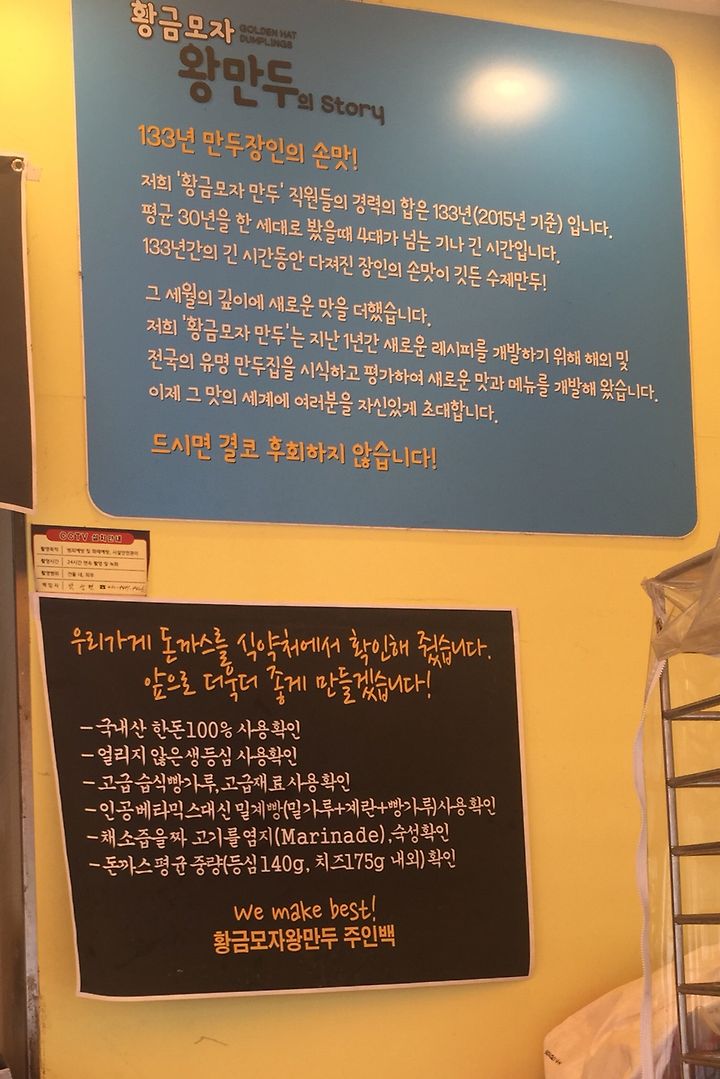 황금모자 GOLDEN HAT
DUMPLINGS
왕만두의 Story
133년 만두장인의 손맛!
저희 '황금모자 만두' 직원들의 경력의 합은 133년(2015년 기준) 입니다.
평균 30년을 한 세대로 봤을때 4대가 넘는 기나 긴 시간입니다.
133년간의 긴 시간동안 다져진 장인의 손맛이 깃든 수제만두!
그 세월의 깊이에 새로운 맛을 더했습니다.
저희 '황금모자 만두'는 지난 1년간 새로운 레시피를 개발하기 위해 해외 및
전국의 유명 만두집을 시식하고 평가하여 새로운 맛과 메뉴를 개발해 왔습니다.
이제 그 맛의 세계에 여러분을 자신있게 초대합니다.
드시면 결코 후회하지 않습니다!
CCTV 설치안내
촬영목적 범죄예방 및 화재예방, 시설안전관리
촬영시간 24시간 연속 촬영 및 녹화
촬영범위 건물 내, 외부
책임자
우리가게 돈까스를 식약처에서 확인해 줬습니다.
앞으로 더욱더 좋게 만들겠습니다!
-국내산 한돈100% 사용확인
-얼리지 않은 생등심 사용확인
-고급 습식빵가루, 고급재료 사용확인
-인공베타믹스대신 밀계빵(밀가루+계란+빵가루)사용확인
-채소즙을짜 고기를염지(Marinade),숙성확인
-돈까스 평균 중량(등심140g, 치즈175g 내외) 확인
We make best!
황금모자왕만두 주인백